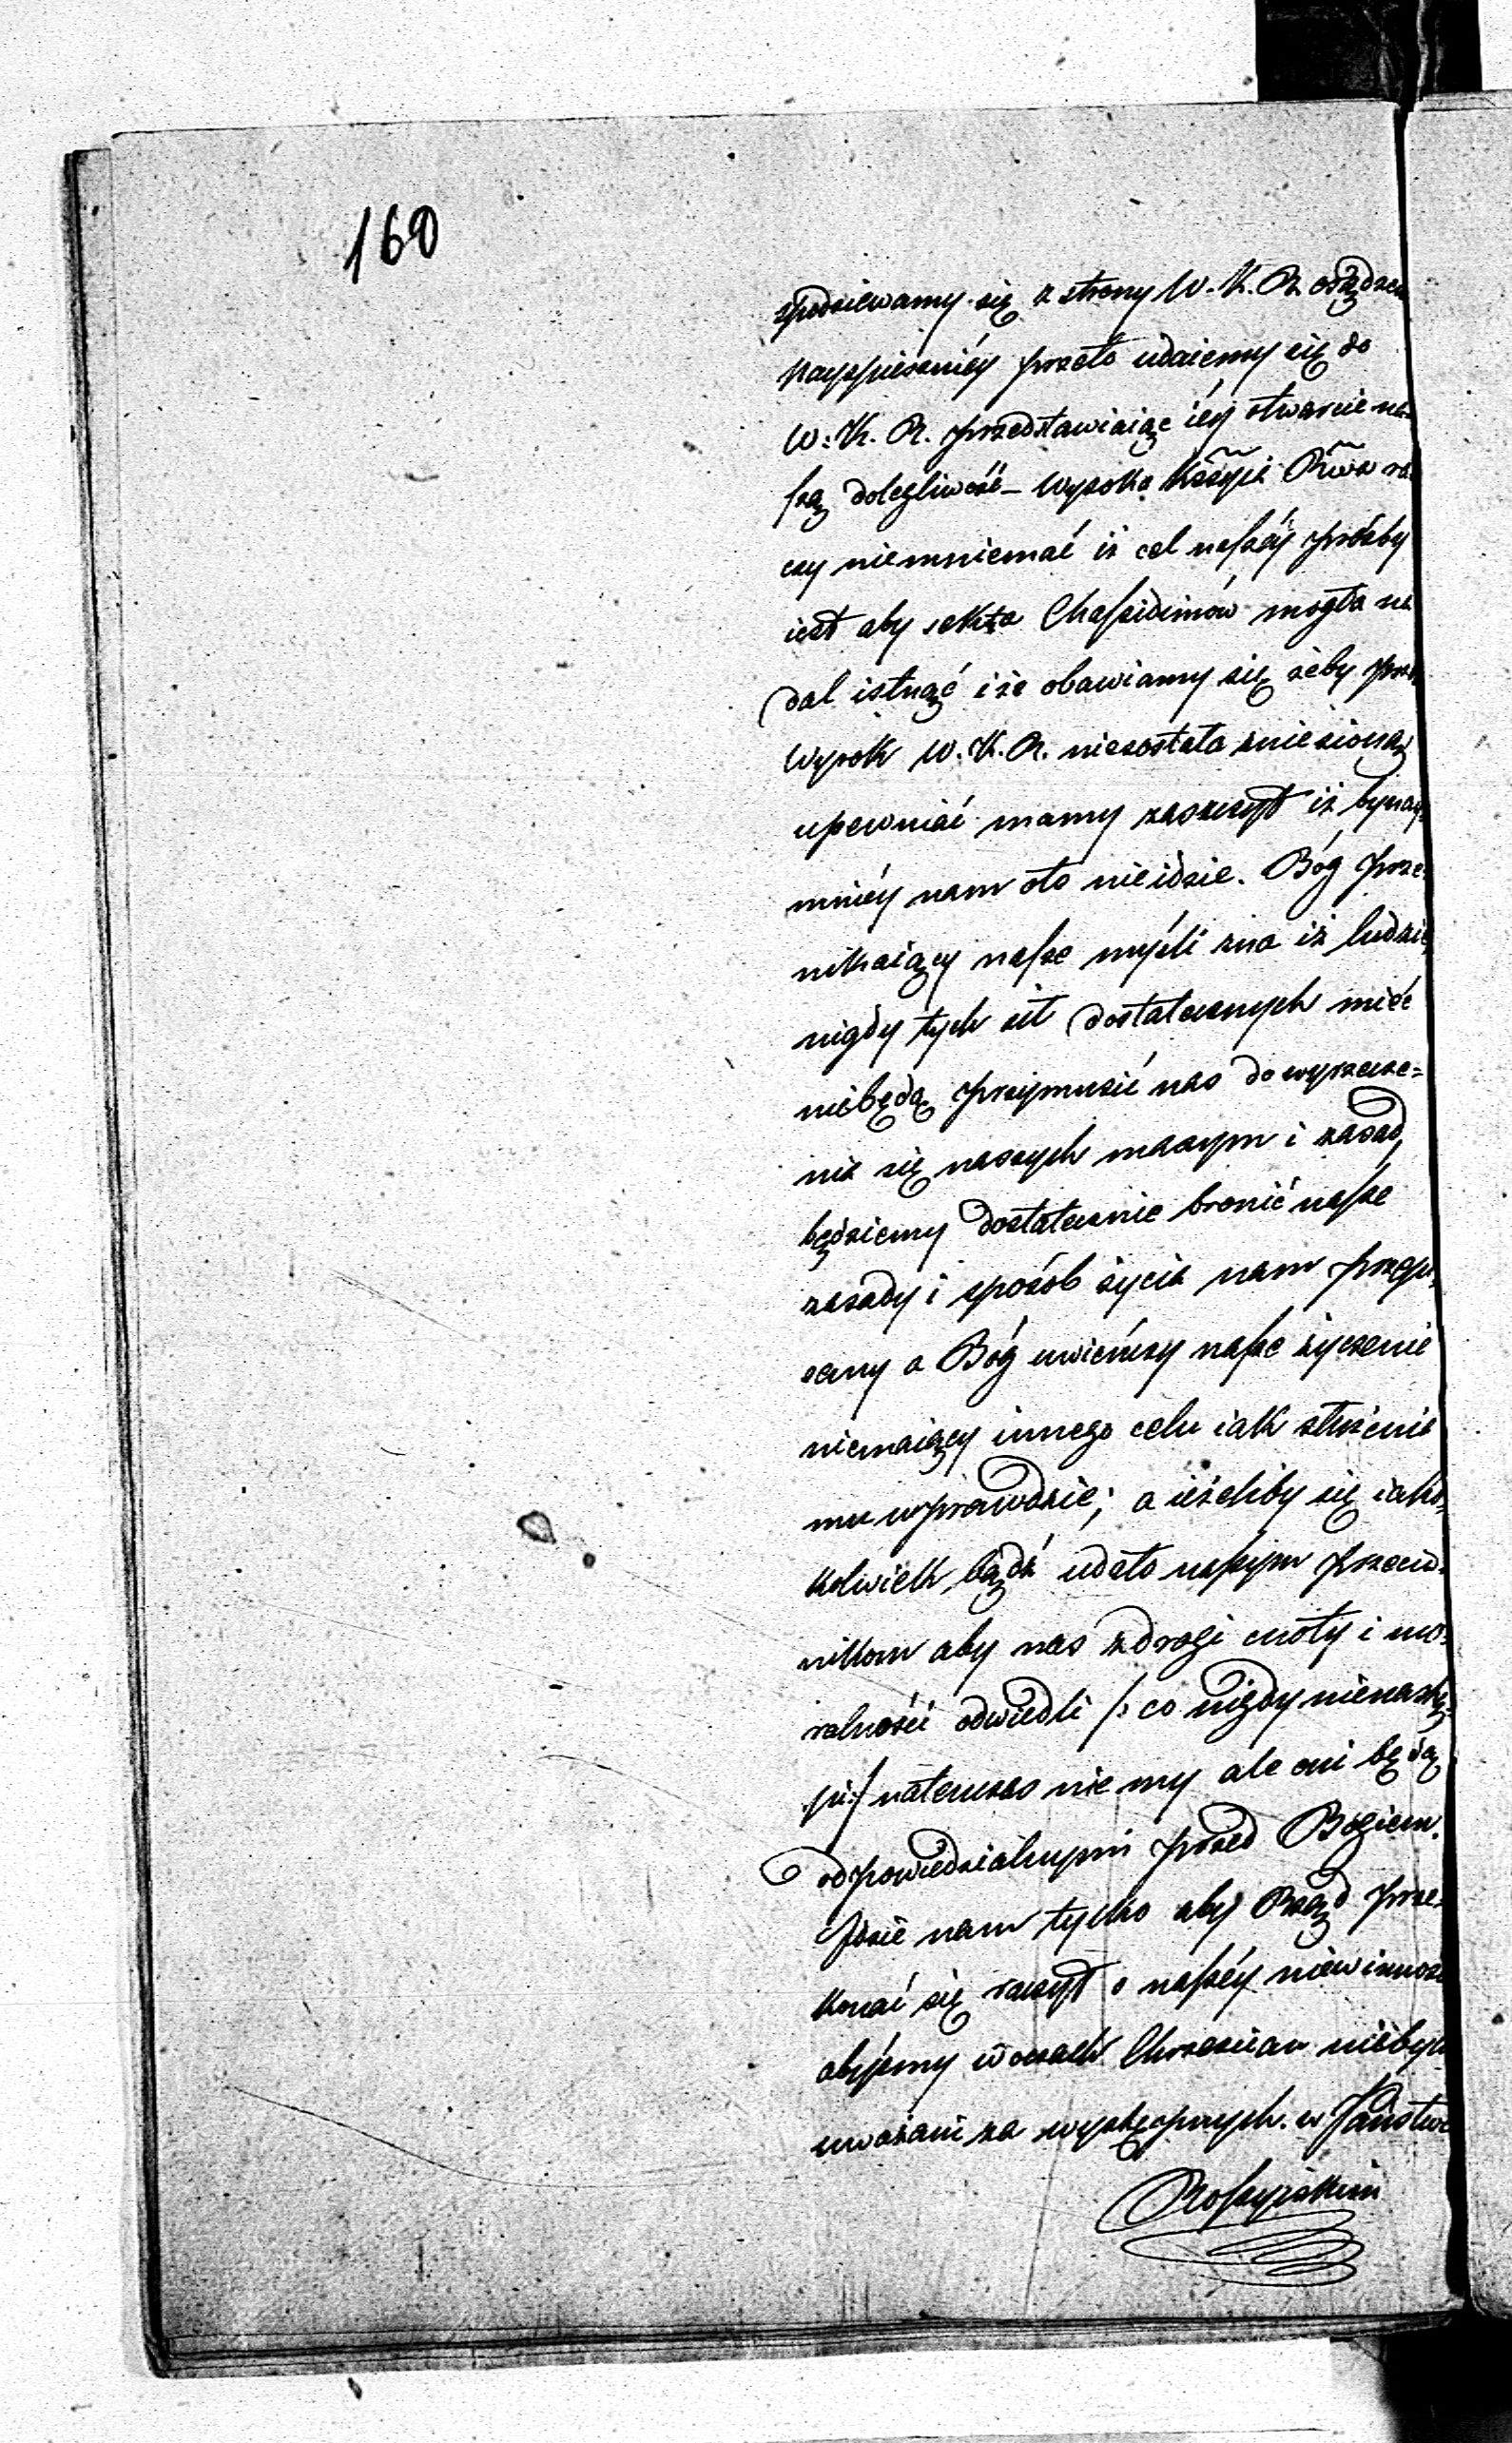 160
spodziewamy się z strony W. K. R. osądzen
Nayspieszniéy przeto udaiemy się do
W: K. R. przedstawiaiąc iéy otwarcie na-
szą dolegliwość – Wysoka Kśsyia Rwa ra
czy niemniemać iż cel naszéy prożby
iest aby sekta Chassidimów mogła na
dal istnąć i że obawiamy się żeby prze
wyrok W. K. R. niezostała zniesioną
upewnić mamy zaszczyt iż bynay
mniéy nam oto nieidzie. Bóg prze-
nikaiący nasze myśli zna iż ludzie
nigdy tych sił dostatecznych mieć
niebędą przymusić nas do wyrzecze=
nia się naszych maxym i zasad,
będziemy dostatecznie bronić nasze
zasady i sposób życia nam przepi-
sany a Bóg uwieńczy nasze życzenie
niemaiący innego celu iak służenie
mu wprawdzie; a ieżeliby się iako-
kolwiek bądź udało naszym przeciw-
nikom aby nas z drogi cnoty i mo-
ralności odwiedli /: co nigdy nienastą-
pi:/ natenczas nie my ale oni będą
odpowiedzialnymi przed Bogiem.
Idzie nam tylko aby Rząd prze-
konać się raczył o naszéy niewinnośc
abyśmy w oczach Chrześcian niebyli
uważani za występnych w Państwie
Rossyiskim